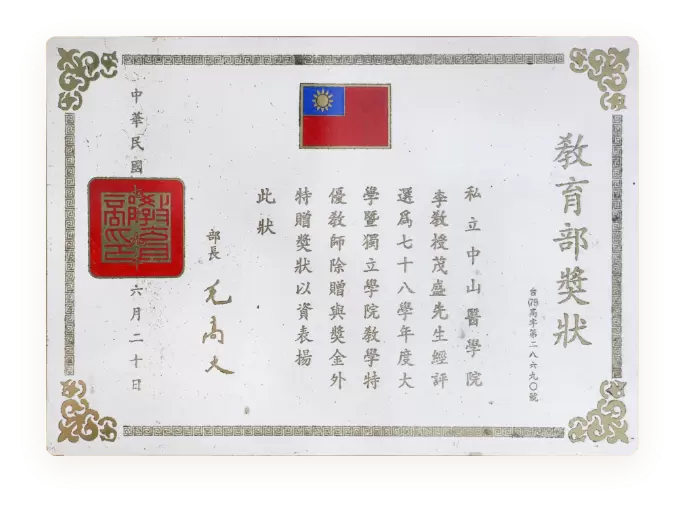 敎育部獎狀
台(79)高字第二八六九〇號
私立中山醫學院
李敎授茂盛先生經評
選爲七十八學年度大
學暨獨立學院敎學特
優敎師除贈與獎金外
特贈獎狀以資表揚
此狀
部長 毛高文
中華民國七十九年六月二十日
敎育部印